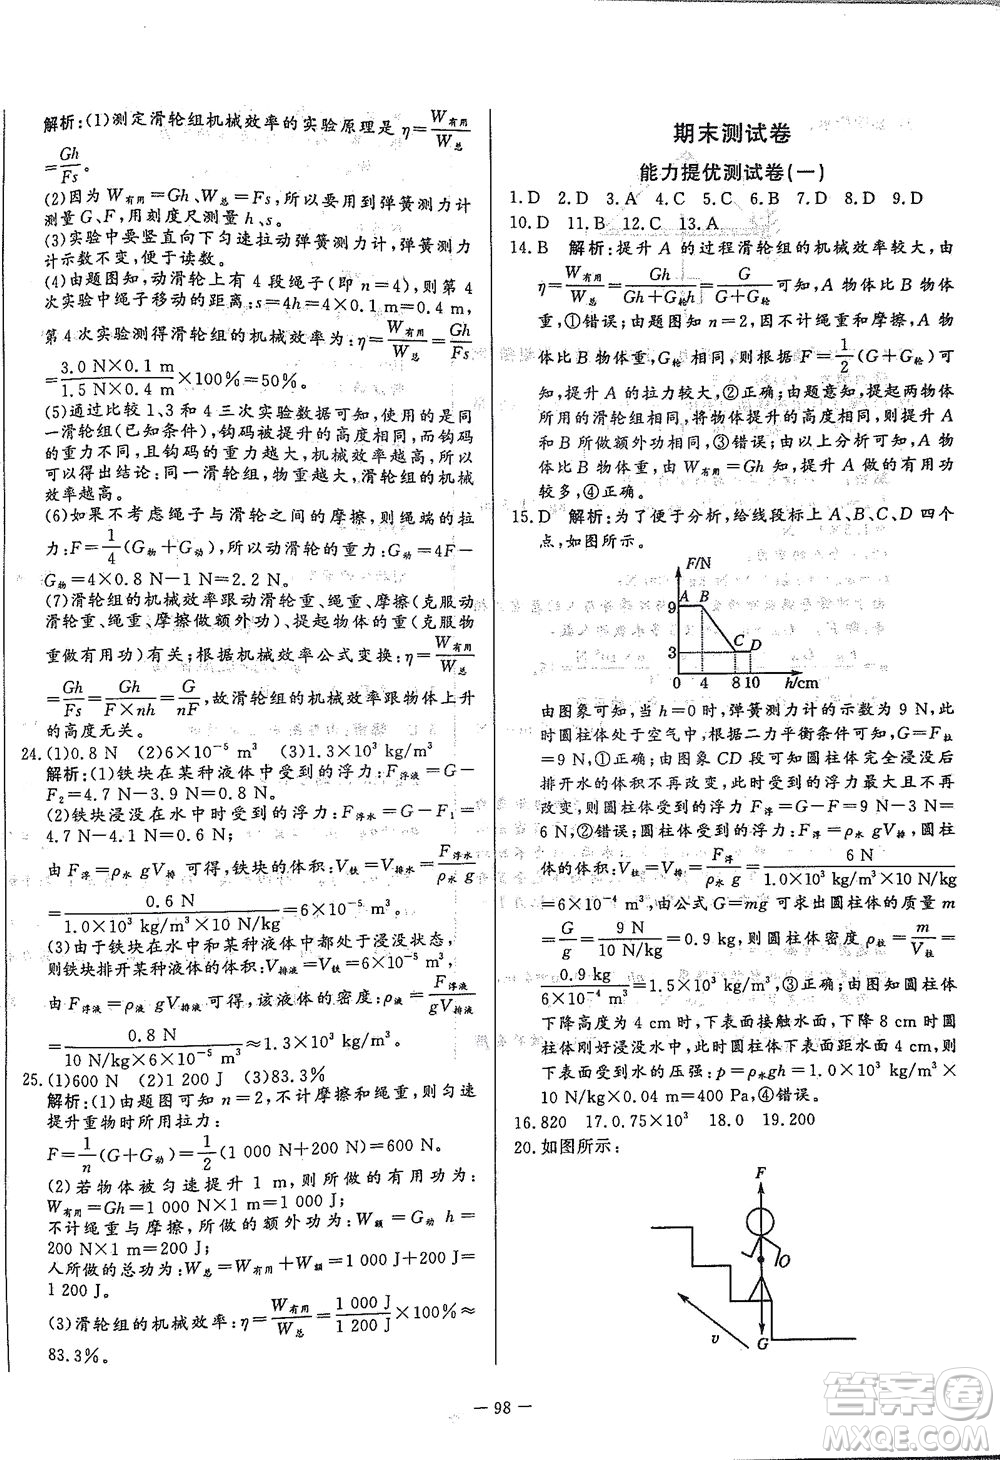 解析:(1)测定滑轮组机械效率的实验原理是 η=W有用/W总
=Gh/Fs。
(2)因为 W有用=Gh、W总=Fs,所以要用到弹簧测力计
测量 G、F,用刻度尺测量 h、s。
(3)实验中要竖直向下匀速拉动弹簧测力计,测力
计示数不变,便于读数。
(4)由题图知,动滑轮上有 4 段绳子(即 n=4),第 4
次实验中绳子移动的距离:s=4h=4×0.1 m=0.4 m,
第 4 次实验测得滑轮组的机械效率为:η=W有用/W总=Gh/Fs
=3.0 N×0.1 m/1.5 N×0.4 m×100%=50%。
(5)通过比较 1、3 和 4 三次实验数据可知,使用的是同
一滑轮组(已知条件),钩码提升的高度相同,而钩码
的重力不同,且钩码的重力越大,机械效率越高,由此
可以得出结论:同一滑轮组,物重越大,滑轮组的机械
效率越高。
(6)如果不考虑绳子与滑轮之间的摩擦,则绳端的拉
力:F=1/4(G物+G动),所以动滑轮的重力:G动=4F-
G物=4×0.8 N-1 N=2.2 N。
(7)滑轮组的机械效率跟动滑轮重、绳重、摩擦(克服动
滑轮重、绳重、摩擦做额外功)、提起物体的重(克服物
重做有用功)有关;根据机械效率公式变换:η=W有用/W总
=Gh/Fs=Gh/F×nh=G/nF,故滑轮组的机械效率跟物体上升
的高度无关。
24.(1)0.8 N (2)6×10⁻⁵ m³ (3)1.3×10³ kg/m³
解析:(1)铁块在某种液体中受到的浮力:F浮液=G-
F₂=4.7 N-3.9 N=0.8 N。
(2)铁块浸没在水中时受到的浮力:F浮水=G-F₁=
4.7 N-4.1 N=0.6 N;
由 F浮=ρ水 gV排 可得,铁块的体积:V铁=V排=F浮水/ρ水 g
=0.6 N/1.0×10³ kg/m³×10 N/kg=6×10⁻⁵ m³。
(3)由于铁块在水中和某种液体中都处于浸没状态,
则铁块排开某种液体的体积:V排液=V铁=6×10⁻⁵ m³,
由 F浮液=ρ液 gV排液 可得,该液体的密度:ρ液=F浮液/gV排液
=0.8 N/10 N/kg×6×10⁻⁵ m³≈1.3×10³ kg/m³。
25.(1)600 N (2)1 200 J (3)83.3%
解析:(1)由题图可知 n=2,不计摩擦和绳重,匀速
提升重物时所用拉力:
F=1/n(G+G动)=1/2(1 000 N+200 N)=600 N。
(2)若物体被匀速提升 1 m,则所做的有用功:
W有用=Gh=1 000 N×1 m=1 000 J;
不计绳重与摩擦,所做的额外功:W额=G动 h=
200 N×1 m=200 J;
人所做的总功:W总=W有用+W额=1 000 J+200 J=
1 200 J。
(3)滑轮组的机械效率:η=W有用/W总=1 000 J/1 200 J×100%≈
83.3%。
期末测试卷
能力提优测试卷(一)
1.D 2.D 3.A 4.C 5.C 6.B 7.D 8.D 9.D
10.D 11.B 12.C 13.A
14.B 解析:提升 A 的过程滑轮组的机械效率较大,由
η=W有用/W总=Gh/Gh+G轮h=G/G+G轮可知,A 物体比 B 物体
重,①错误;由题图知 n=2,因不计绳重和摩擦,A 物
体比 B 物体重,G轮 相同,则根据 F=1/2(G+G轮)可
知,提升 A 的拉力较大,②正确;由题意知,两物体
所用的滑轮组相同,将物体提升的高度相同,则提升
A 和 B 所做额外功相同,③错误;由以上分析可知,A 物
体比 B 物体重,根据 W有用=Gh 知,提升 A 做的有用功
较多,④正确。
15.D 解析:为了便于分析,给线段标上 A、B、C、D 四个
点,如图所示。
F/N
A B
9
C D
3
0 4 8 10 h/cm
由图象可知,当 h=0 时,弹簧测力计的示数为 9 N,此
时圆柱体处于空气中,根据二力平衡条件可知,G=F拉
=9 N,①错误;由图象 CD 段可知圆柱体完全浸没后
排开水的体积不再改变,此时受到的浮力最大且不再
改变,则圆柱体受到的最大浮力 F浮=G-F=9 N-3 N=
6 N,②错误;圆柱体受到的浮力:F浮=ρ水 gV排,圆柱
体的体积:V柱=V排=F浮/ρ水 g=6 N/1.0×10³ kg/m³×10 N/kg
=6×10⁻⁴ m³,由公式 G=mg 可求出圆柱体的质量 m
=G/g=9 N/10 N/kg=0.9 kg,则圆柱体密度 ρ柱=m/V柱=
0.9 kg/6×10⁻⁴ m³=1.5×10³ kg/m³,③正确;由图知圆柱体
下降高度为 4 cm 时,下表面接触水面,下降 8 cm 时圆
柱体刚好浸没水中,此时圆柱体下表面距水面 4 cm,则
其下表面受到水的压强:p=ρ水gh=1.0×10³ kg/m³×
10 N/kg×0.04 m=400 Pa,④错误。
16.820 17.0.75×10³ 18.0 19.200
20.如图所示:
F
O
v
G
— 98 —
答案圈
MXQE.COM